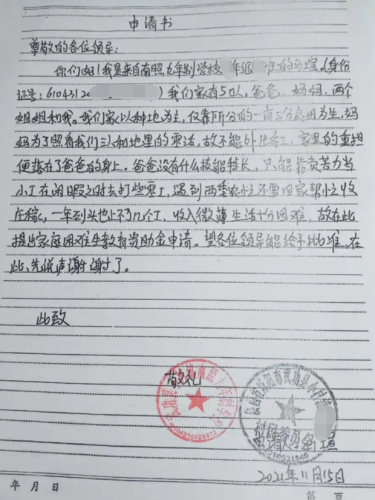 申请书
尊敬的各位领导:
你们好!我是来自南照九年制学校 年级 班的 (身份
证号:6104312 )我们家有5口人,爸爸、妈妈、两个
姐姐和我。我们家以种地为主,仅靠所分的一亩三分急田为生,妈
妈为了照看我们三人和地里的农活,故不能外出务工,家里的重担
便落在了爸爸的身上。爸爸没有什么技能特长,只能靠卖苦力当
小工在闲暇之时去打些零工,遇到两季农忙还要回家帮忙收
庄稼,一年到头也上不了几个工,收入微薄生活十分困难,故在此
提出家庭困难 教育资助金申请。望各位领导能给予批准,在
此,先说声谢谢了。
此致
敬礼
申请
2021年11月15日
年 月 日
第 页